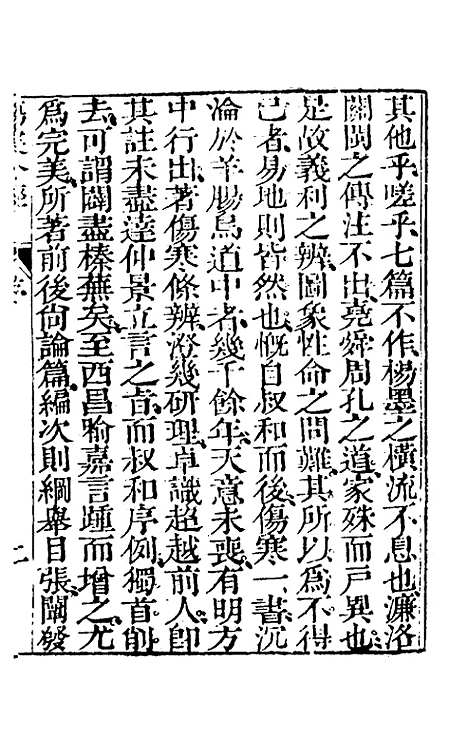 其他乎嗟乎七篇不作楊墨之橫流不息也濂洛
關閩之傳注不出堯舜周孔之道家殊而戸異也
是故義利之辨圖象性命之問難其所以爲不得
已者易地則皆然也慨自叔和而後傷寒一書沉
淪於羊腸鳥道中者幾千餘年天意未喪有明方
中行出著傷寒條辨澄幾研理卓識超越前人卽
其註未盡達仲景立言之旨而叔和序例獨首削
去可謂闢盡榛蕪矣至西昌喻嘉言踵而增之尤
爲完美所著前後尙論篇編次則綱舉目張闡發
二